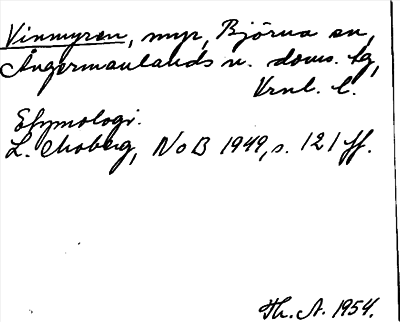 Vinmyren, myr, Björna sn,
Ångermanlands n. doms. tg,
Vrnl. l.
Etymologi.
L. Moberg, NoB 1949, s. 121 ff.
Th. A. 1954.